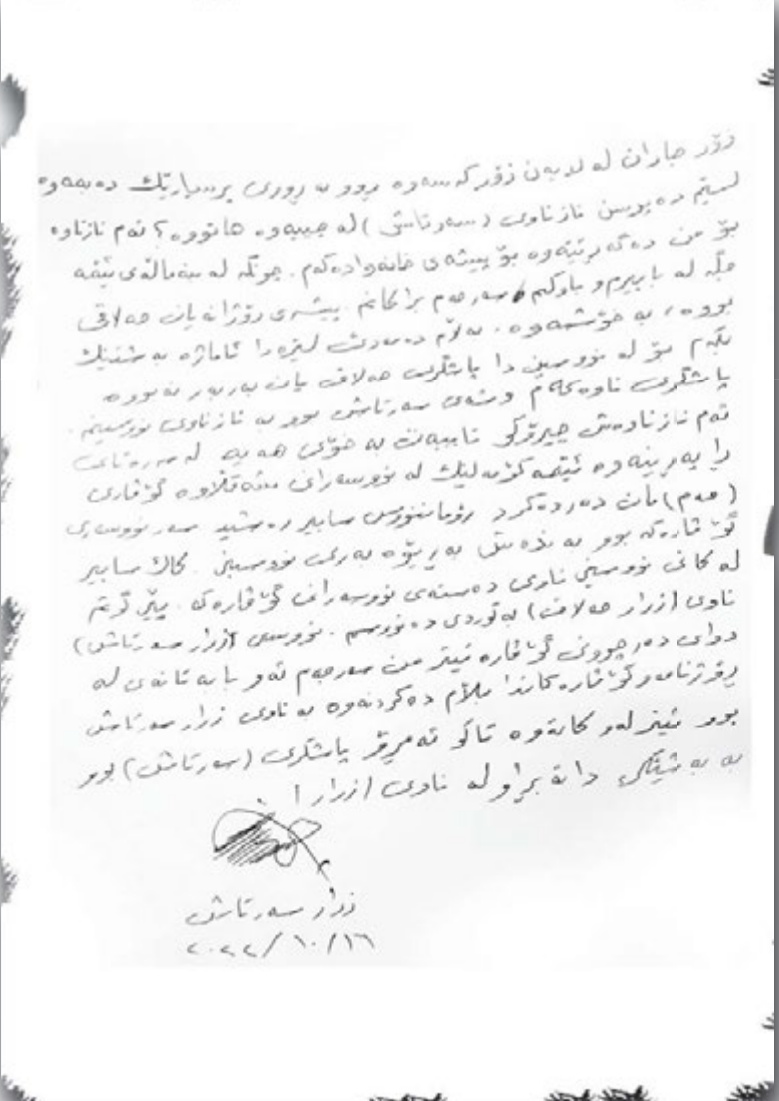 زۆر جاران لە لایەن زۆر کەسەوە ڕوو بە ڕووی پرسیارێک دەبمەوە
لێم دەپرسن نازناوی (سەرتاش) لە چییەوە هاتووە؟ ئەم نازناوە
بۆ من دەگەڕێتەوە بۆ پیشەی خانەوادەکەم. چونکە لە بنەماڵەی ئێمە
جگە لە باپیرم و باوکم سەرجەم براکانم پیشەی رۆژانەیان حەلاقی
بووە، بە خۆشمەوە. بەڵام دەمەوێت لێرەدا ئاماژە بە شتێک
بکەم بۆ لە نووسین دا پاشگری حەلاق یان بەربەر نەبووە
پاشگری ناوەکەم وشەی سەرتاش بوو بە نازناوی نووسینم.
ئەم نازناوەش چیرۆکی تایبەت بە خۆی هەیە لە سەرەتای
ڕاپەڕینەوە ئێمە کۆمەڵێک لە نووسەرانی شەقڵاوە گۆڤاری
( ) مان دەردەکرد ڕۆماننووس سابیر رەشید سەرنووسەری
گۆڤارەکە بوو بەندەش بەڕێوەبەری نووسین. کاک سابیر
لە کاتی نووسینی ناوی دەستەی نووسەرانی گۆڤارەکە. پێی گوتم
ناوی (نزار حەلاق) بە کوردی دەنووسم. نووسی (نزار سەرتاش)
دوای دەرچوونی گۆڤارە ئیتر من سەرجەم ئەو بابەتانەی لە
ڕۆژنامە و گۆڤارەکاندا بڵاوم دەکردنەوە بە ناوی نزار سەرتاش
بوو ئیتر لەو کاتەوە تاکو ئەمڕۆ پاشگری (سەرتاش) بوو
بە بەشێکی دانەبڕاو لە ناوی (نزار)
نزار سەرتاش
٢٠٢٢/١٠/١٦